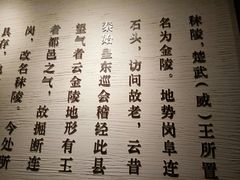 秣陵，楚武（威）王所置
名为金陵。地势岗阜连
石头，访问故老，云昔
秦始皇东巡会稽经此县
望气者云金陵地形有王
者都邑之气，故掘断连
岗，改名秣陵。今处所
具存，地